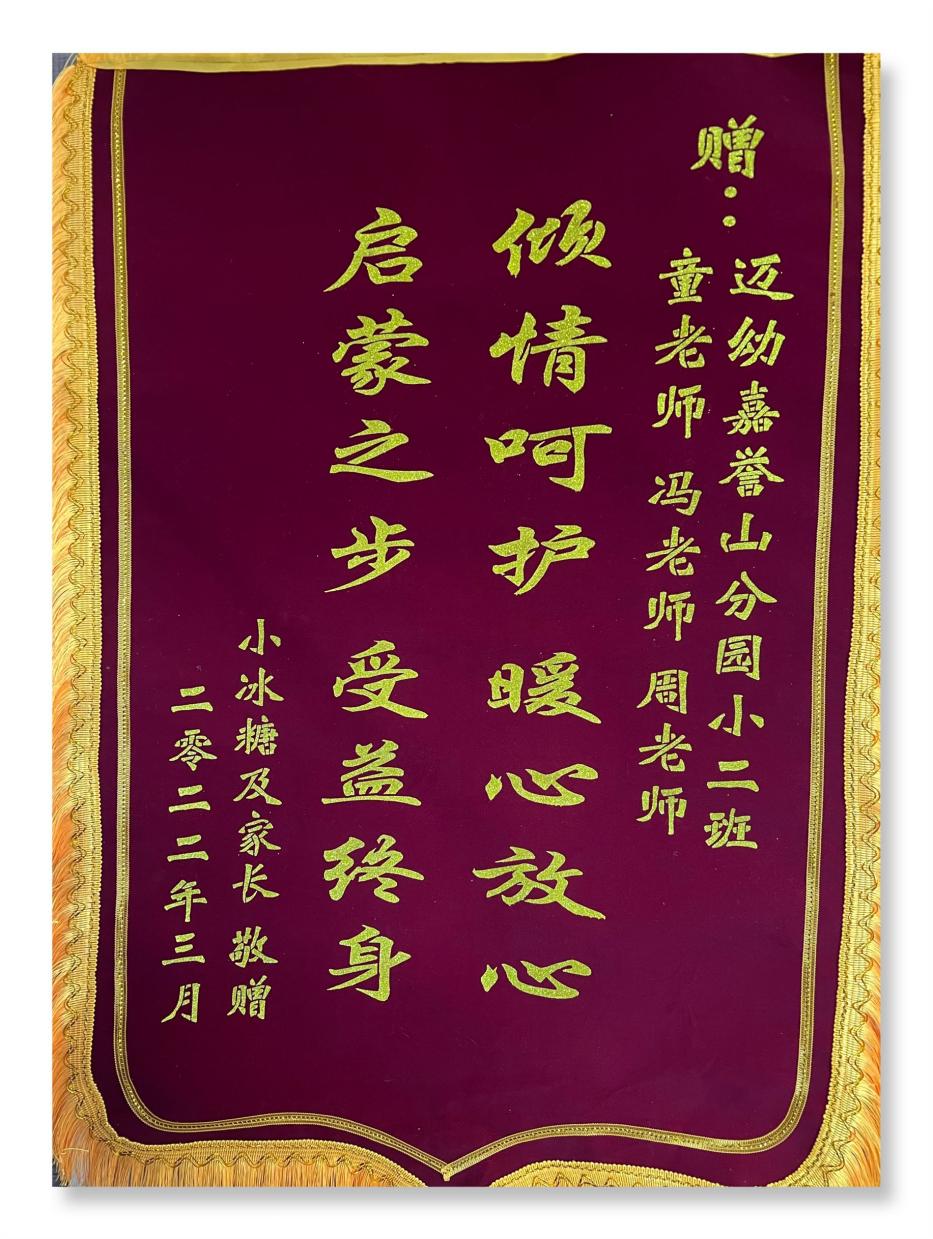 赠：
迈幼嘉誉山分园小二班
童老师 冯老师 周老师
倾情呵护 暖心放心
启蒙之步 受益终身
小冰糖及家长 敬赠
二零二二年三月